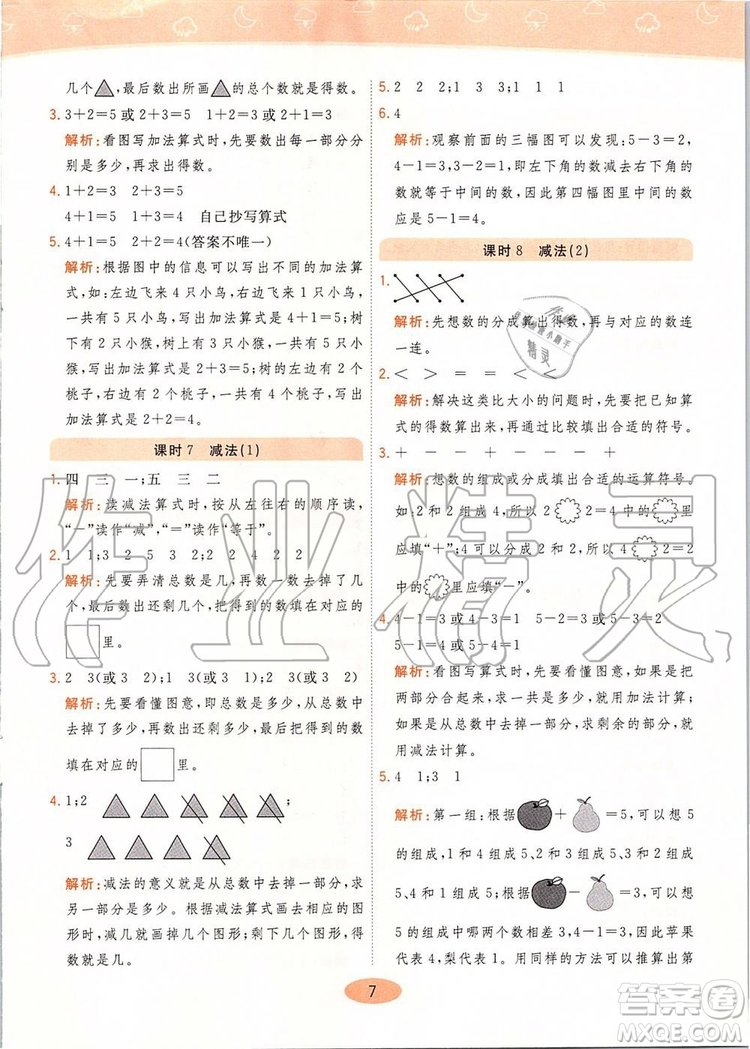 几个△,最后数出所画△的总个数就是得数。
3. 3+2=5 或 2+3=5　1+2=3 或 2+1=3
解析:看图写加法算式时,先要数出每一部分分
别是多少,再求出得数。
4. 1+2=3　2+3=5
4+1=5　1+4=5　自己抄写算式
5. 4+1=5　2+2=4(答案不唯一)
解析:根据图中的信息可以写出不同的加法算
式,如:左边飞来 4 只小鸟,右边飞来 1 只小鸟,
一共是 5 只小鸟,写出加法算式是 4+1=5;大
树下有 2 只小猴,树上有 3 只小猴,一共有 5 只小
猴,写出加法算式是 2+3=5;左边有 2 个
桃子,右边有 2 个桃子,一共有 4 个桃子,写出
加法算式是 2+2=4。
课时 7　减法(1)
1. 四　三　一;五　三　二
解析:读减法算式时,按从左往右的顺序读,
“-”读作“减”,“=”读作“等于”。
2. 1　1;3　2　5　3　2　2　2　2
解析:先要弄清总数是几,再数出去掉了几个
和还剩几个,把得到的数填在对应的
□里。
3. 2　3(或 2)　2(或 3);1(或 3)　3(或 1)
解析:先要看懂图意,即总数是多少,从总数中
去掉了多少,再数出还剩多少,把得到的数
填在对应的□里。
4. 1;2
3
解析:减法的意义就是从总数中去掉一部分,求
另一部分。根据减法算式画去对应的图形时,
减几就画掉几个图形;剩下几个图形,得
数就是几。
5. 2　2　2;1　3　3;1　1　1
6. 4
解析:观察前面的三幅图可以发现:5-3=2,
4-1=3,3-1=2,即左下角的数减去右下角的
数就等于中间的数,因此第四幅图里中间的数
应是 5-1=4。
课时 8　减法(2)
1.
解析:先想数的分成算出得数,再与对应的数连
一连。
2. <　>　=　=　<　=
解析:解决这类比大小的问题时,先要把已知算
式的得数算出来,再比较大小。
3. +　+　-　-　-　-
解析:想数的组成或分成填出合适的运算符号。
如:2 和 2 组成 4,所以 2 2=4 的 里
应填“+”;4 可以分成 2 和 2,所以 4 2=2
的 里应填“-”。
4. 4-1=3　1+3=4　5-2=3　2-1=1
2+3=5　5-1=4
解析:解决这类问题,先要看懂图意,如果是把
两部分合起来,求一共是多少,用加法计算;
如果是从总数中去掉一部分,求剩余的部分,就
用减法计算。
5. 4　1;3　1
解析:第一组:根据 + =5,可以想 5
的组成,1 和 4 组成 5、2 和 3 组成 5、3 和 2 组成
5、4 和 1 组成 5;根据 - =3,可以想
5 的组成中哪两个数相差 3,4-1=3,因此苹果
代表 4,梨代表 1。用同样的方法可以推算出第
7
作业精灵
答案圈
MXQE.COM